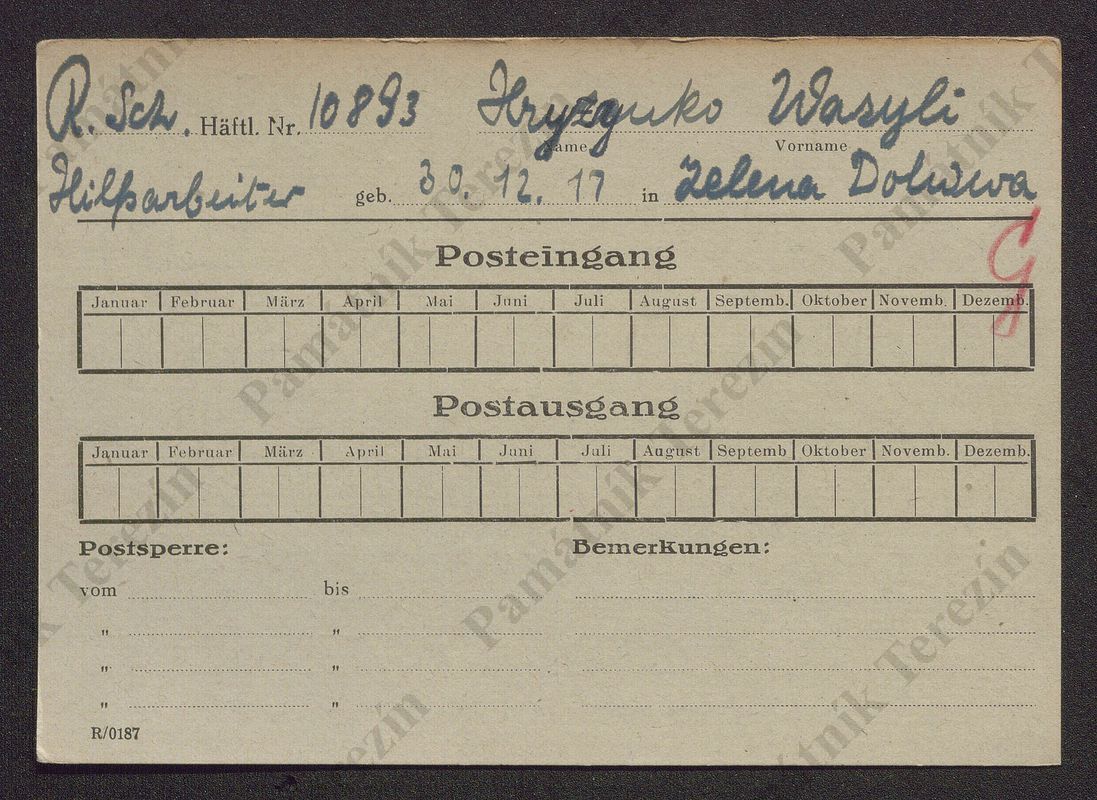 R. Sch. Häftl. Nr. 10893 Hryzynko Wasyli
Name Vorname
Hilfsarbeiter geb. 30. 12. 17 in Zelena
G
Posteingang
Januar Februar März April Mai Juni Juli August Septemb. Oktober Novemb. Dezemb.
Postausgang
Januar Februar März April Mai Juni Juli August Septemb Oktober Novemb. Dezemb.
Postsperre: Bemerkungen:
vom bis
" "
" "
" "
R/0187
Památník Terezín